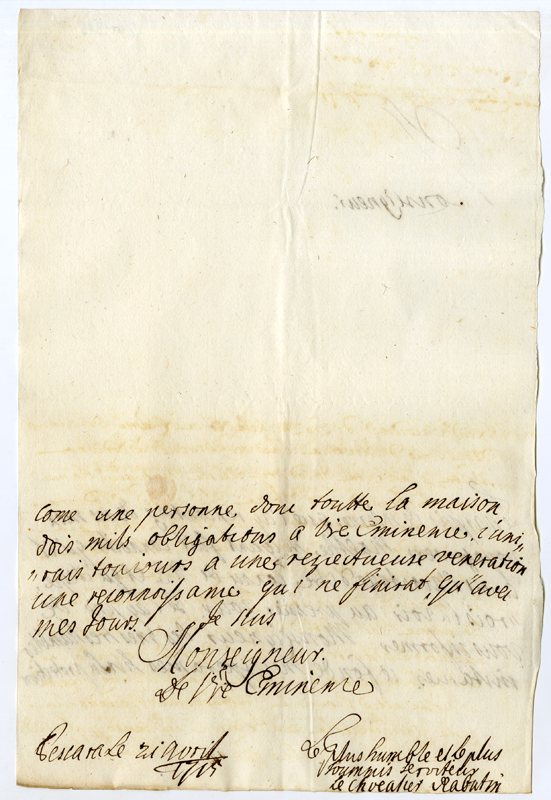 come une personne donc toutte la maison
dois mils obligations a Vre Eminence. j'uni„
„rais toujours a une respectueuse veneration
une reconnoissance qui ne finirat, qu'avec
mes Jours. Je suis
Monseigneur.
De Vre Eminence
Pescara Le 21 avril
Le plus humble et le plus
soumis serviteur
le chevalier Rabutin